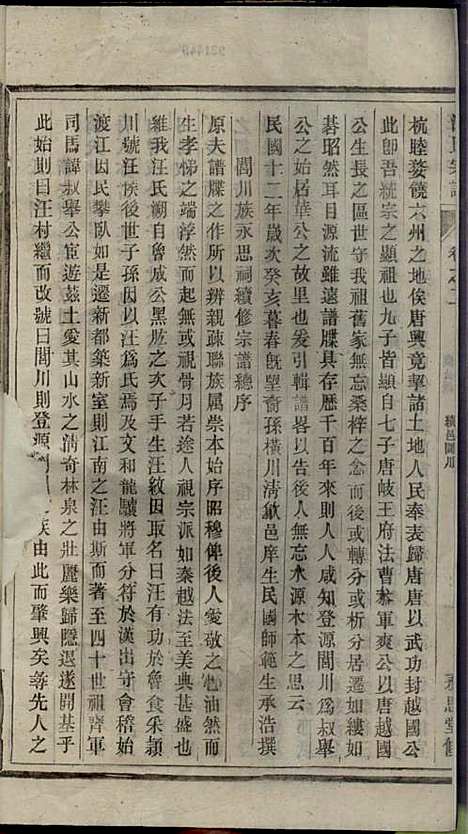 杭睦婺饒六州之地俟唐興竟挈諸土地人民奉表歸唐唐以武功封越國公
此卽吾統宗之顯祖也九子皆顯自七子唐岐王府法曹叅軍爽公以唐越國
公生長之區世守我祖舊家無忘桑梓之念而後或轉分或析分居遷如縷如
碁昭然耳目源流雖遠譜牒具存歷千百年來則人人咸知登源閭川爲叔舉
公之始居華公之故里也爰引輯譜畧以告人無忘水源木本之思云
民國十二年歲次癸亥暮春旣望裔孫橫川清歙邑庠生民國師範生承浩撰
閭川族永思祠續修宗譜總序
原夫譜牒之作所以辨親疎聯族属崇本始序昭穆俾後人愛敬之心油然而
生孝悌之端浮然而起無或視骨月若途人視宗派如秦越法至美典甚盛也
維我汪氏溯自魯成公黑肱之次子手生汪紋因取名日汪有功於魯食采潁
川號汪侯後世子孫因以汪爲氏焉及文和龍驤將軍分符於漢出守會稽始
渡江因民攀臥如是遷新都築新室則江南之汪由斯而著至四十世祖齊軍
司馬諱叔舉公宦遊茲土愛其山水之淸奇林泉之壯麗樂歸隱遐遂開基乎
此始則曰汪村繼而改號曰閭川則登源族由此而肇興矣夀先人之
卷之
績邑閭川
永思堂修
921449